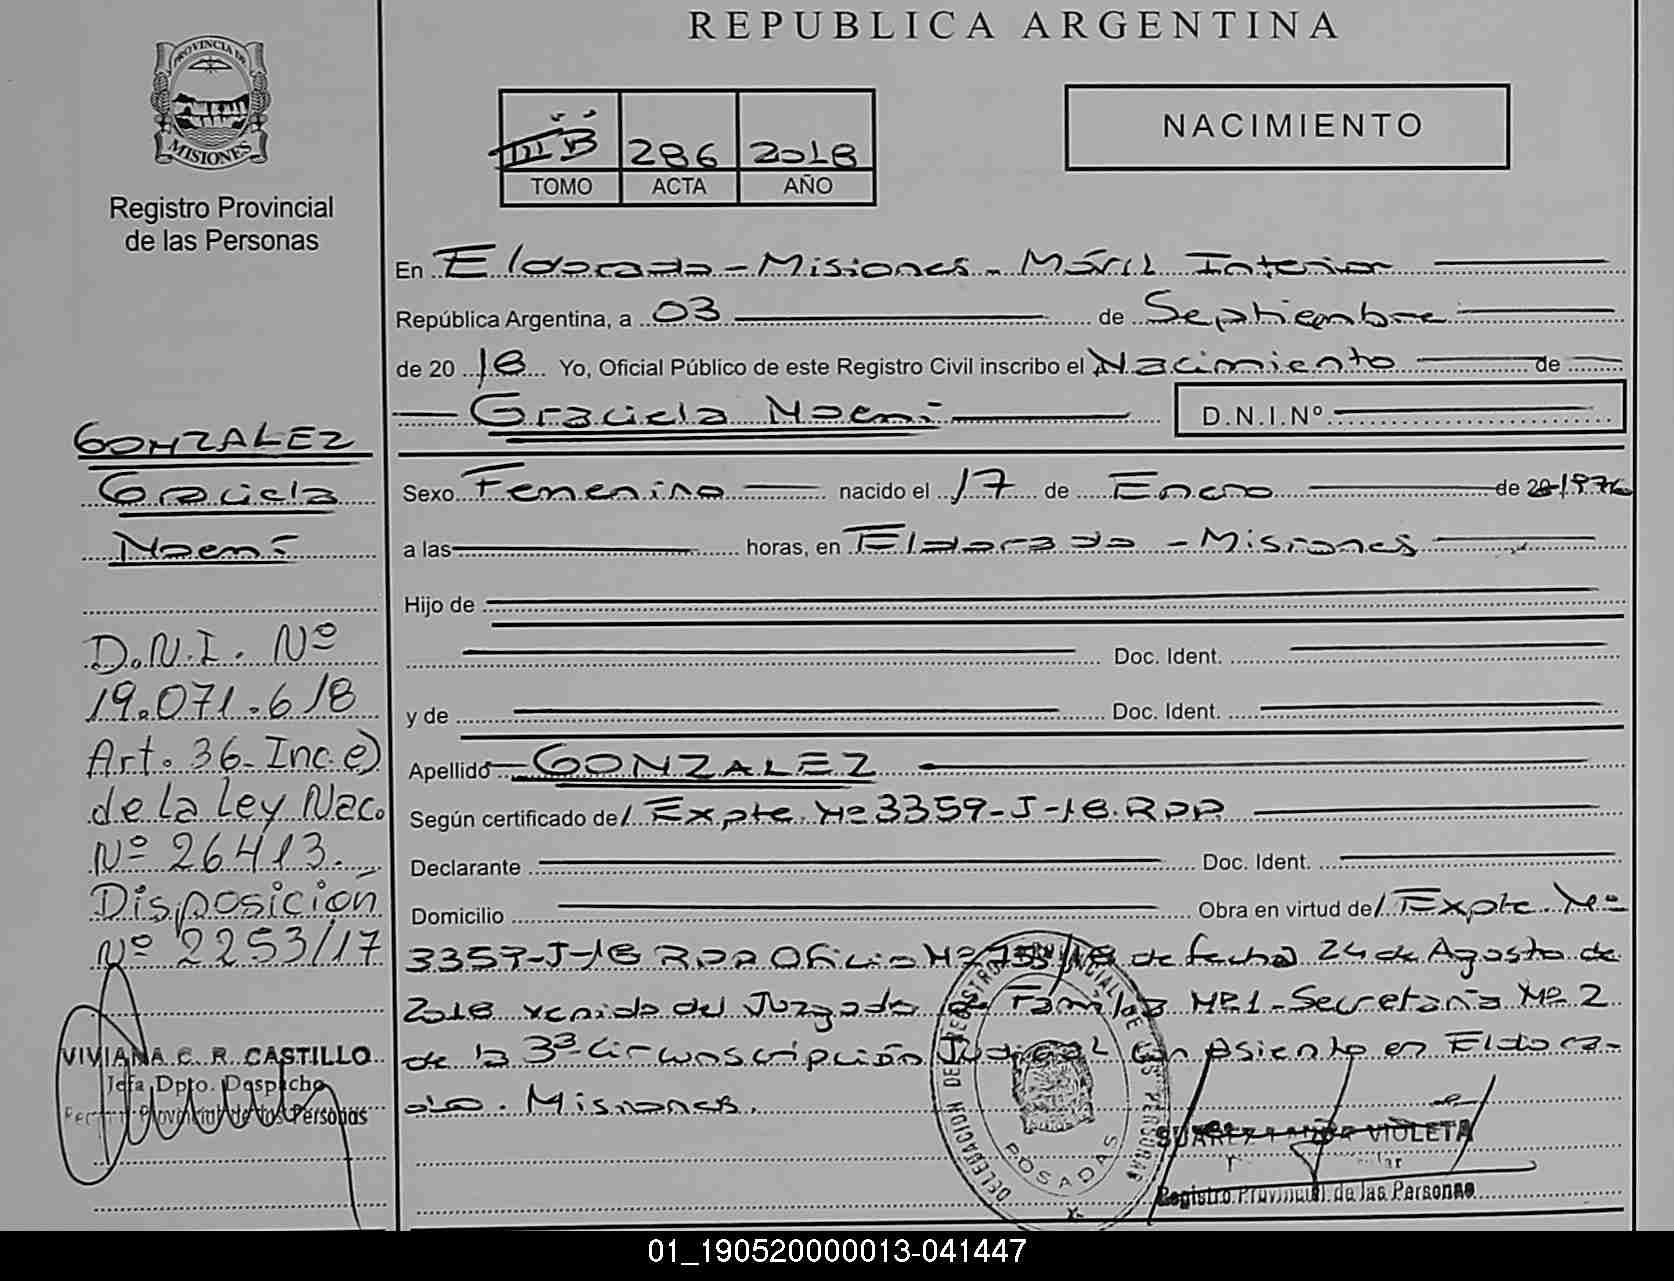 REPUBLICA ARGENTINA
PROVINCIA DE
MISIONES
Registro Provincial
de las Personas
III B 286 2018
TOMO ACTA AÑO
NACIMIENTO
En Eldorado - Misiones - Móvil Interior
República Argentina, a 03 de Septiembre
de 20 18 Yo, Oficial Público de este Registro Civil inscribo el Nacimiento de
Graciela Noemí D.N.I.Nº
Sexo Femenino nacido el 17 de Enero de 20 1976
a las horas, en Eldorado - Misiones
Hijo de
Doc. Ident.
y de Doc. Ident.
Apellido GONZALEZ
Según certificado de Expte. Nº 3359-J-18.RPP
Declarante Doc. Ident.
Domicilio Obra en virtud de Expte Nº
3359-J-18 RPP Oficio Nº /18 de fecha 24 de Agosto de
2018 venido del Juzgado de Familia Nº 1 - Secretaría Nº 2
de la 3ª Circunscripción Judicial con asiento en Eldora-
do. Misiones.
GONZALEZ
Graciela
Noemí
D.N.I. Nº
19.071.618
Art. 36 Inc. e)
de la Ley Nac.
Nº 26413.
Disposición
Nº 2253/17
VIVIANA C. R. CASTILLO
Jefa Dpto. Despacho
Provincial de las Personas
DELEGACION DE REGISTRO PROVINCIAL DE LAS PERSONAS
POSADAS
SUAREZ VIOLETA
Registro Provincial de las Personas
01_190520000013-041447